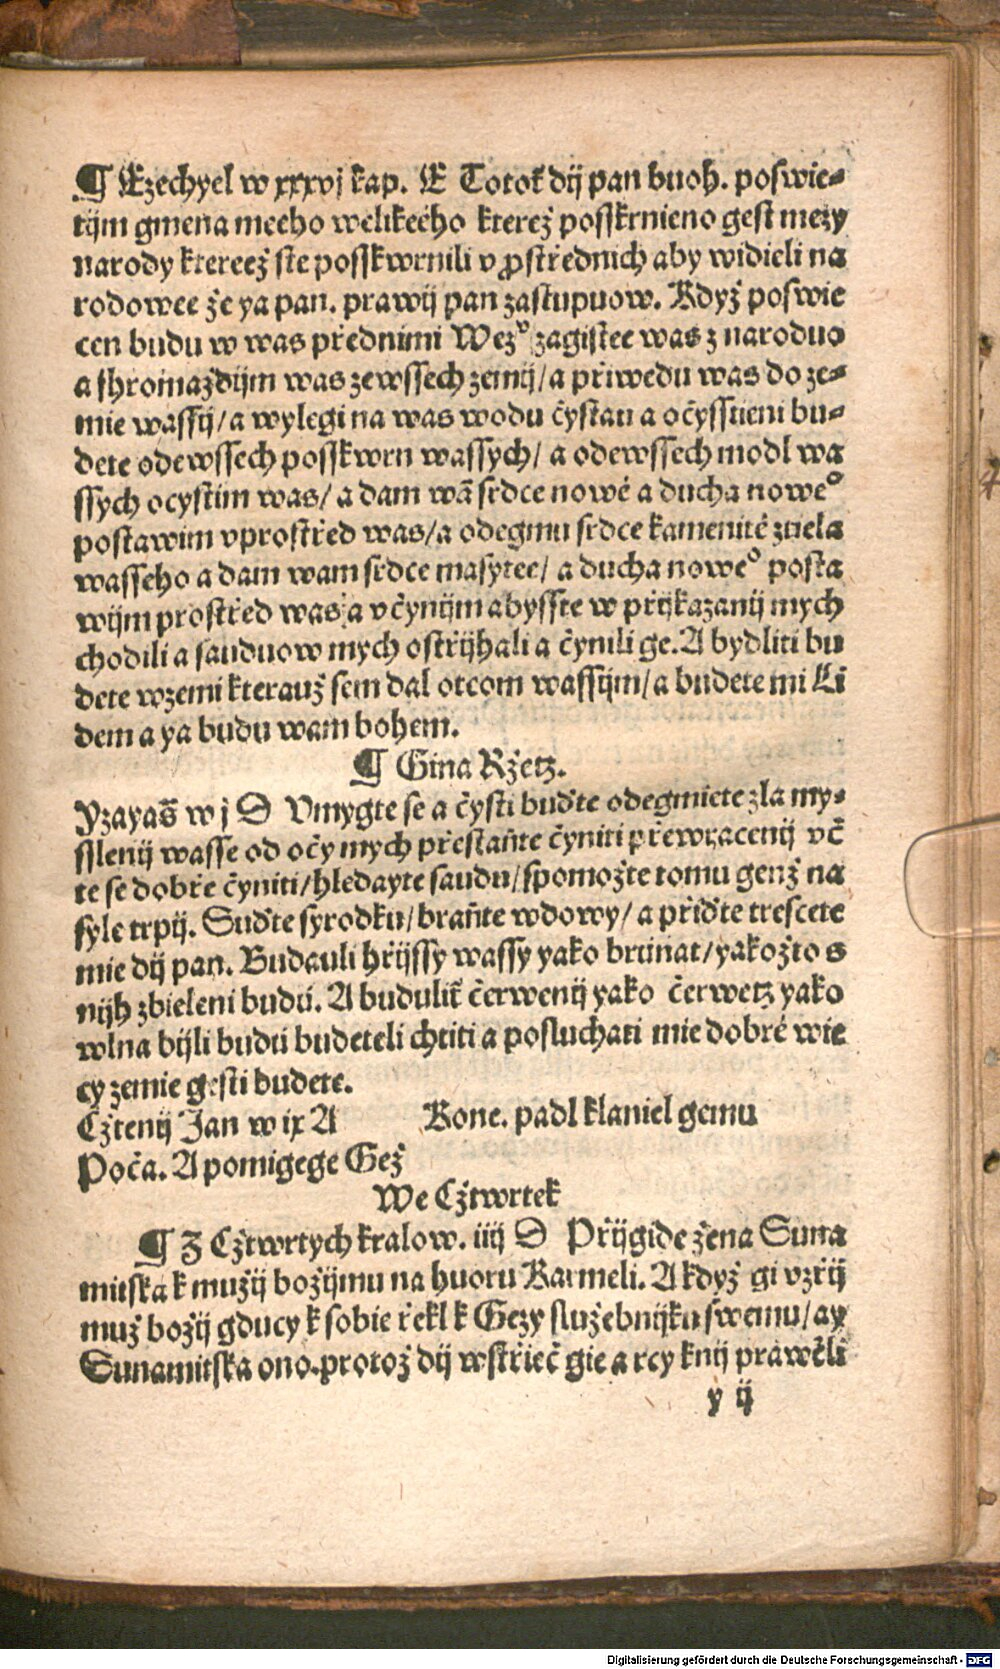 ¶ Ezechyel w xxxvj kap. E Totoť dij pan buoh. poswie-
tijm gmena meeho welikeeho kterež posskrnieno gest mezy
narody ktereež ste posskwrnili v ꝓstřednich aby widieli na
rodowee že ya pan. prawij pan zastupuow. Když poswie
cen budu w was přednimi Wezͦ zagistee was z naroduo
a shromaždijm was zewssech zemij/ a přiwedu was do ze-
mie wassij/ a wylegi na was wodu čystau a očysstieni bu-
dete odewssech posskwrn wassych/ a odewssech modl wa
ssych ocystim was/ a dam wā srdce nowé a ducha noweͦ
postawim vprostřed was/a odegmu srdce kamenité ztiela
wasseho a dam wam srdce masytee/ a ducha noweͦ posta
wijm prostřed was/a včynijm abysste w přijkazanij mych
chodili a sauduow mych ostřijhali a čynili ge. A bydliti bu
dete wzemi kterauž sem dal otcom wassijm/a budete mi Li
dem a ya budu wam bohem.
¶ Gina Ržetz.
Yzayaš w j D Vmygte se a čysti buďte odegmiete zla my-
sslenij wasse od očy mych přestaňte čyniti přewracenij vč
te se dobře čyniti/hledayte saudu/spomožte tomu genž na
syle trpij. Suďte syrodku/braňte wdowy/ a přiďte trescete
mie dij pan. Budauli hřijssy wassy yako brunat/yakožto s
nijh zbieleni budú. A budulit̄ čerwenij yako čerwetz yako
wlna bijli budú budeteli chtiti a posluchati mie dobré wie
cy zemie gesti budete.
Cžtenij Jan w ix A Kone. padl klaniel gemu
Poča. A pomigege Gež
We Cžtwrtek
¶ Z Cžtwrtych kralow. iiij D Přijgide žena Suna
mitska k mužij božijmu na huoru Karmeli. A když gi vzřij
muž božij gducy k sobie řekl k Gezy služebnijku swemu/ay
Sunamitska ono. protož dij wstřieč gie a rcy knij prawěli
y ij
Digitalisierung gefördert durch die Deutsche Forschungsgemeinschaft - DFG